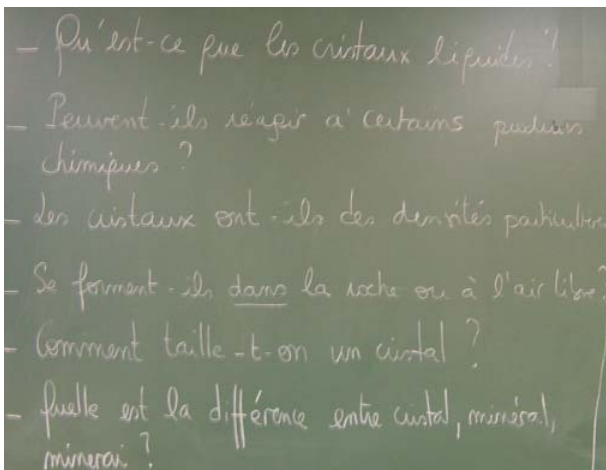 - Qu'est-ce que les cristaux liquides ?
- Peuvent-ils réagir à certains produits
chimiques ?
- Les cristaux ont-ils des densités particulières
- Se forment-ils dans la roche ou à l'air libre ?
- Comment taille-t-on un cristal ?
- Quelle est la différence entre cristal, minéral,
minerai ?